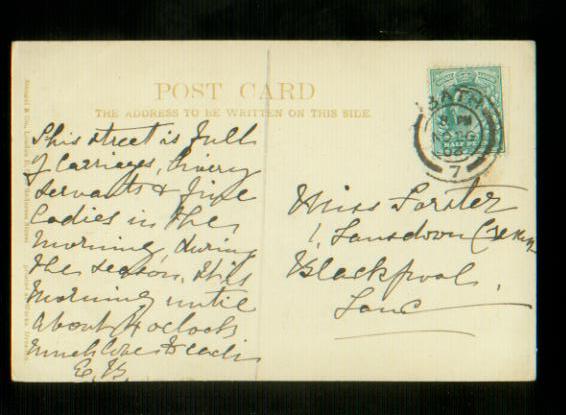 POST CARD
THE ADDRESS TO BE WRITTEN ON THIS SIDE.
This street is full
of Carriages, livery
Servants & fine
Ladies in the
Morning, during
the season, it is
Morning until
about 4 oclock
much love to
E.
BATH
8 PM
03
7
HALF PE
Miss Forster
1, Lansdown Crescent
Blackpool.
Lanc